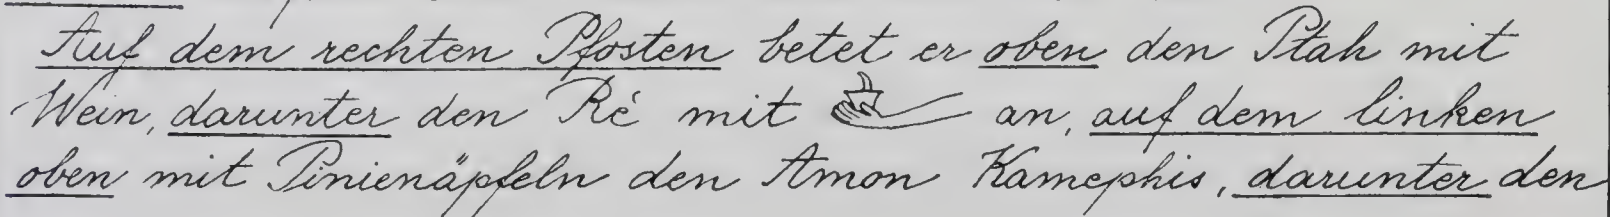 Auf dem rechten Pfosten betet er oben den Ptah mit
Wein, darunter den Rè mit an, auf dem linken
oben mit Pinienäpfeln den Amon Kamephis, darunter den